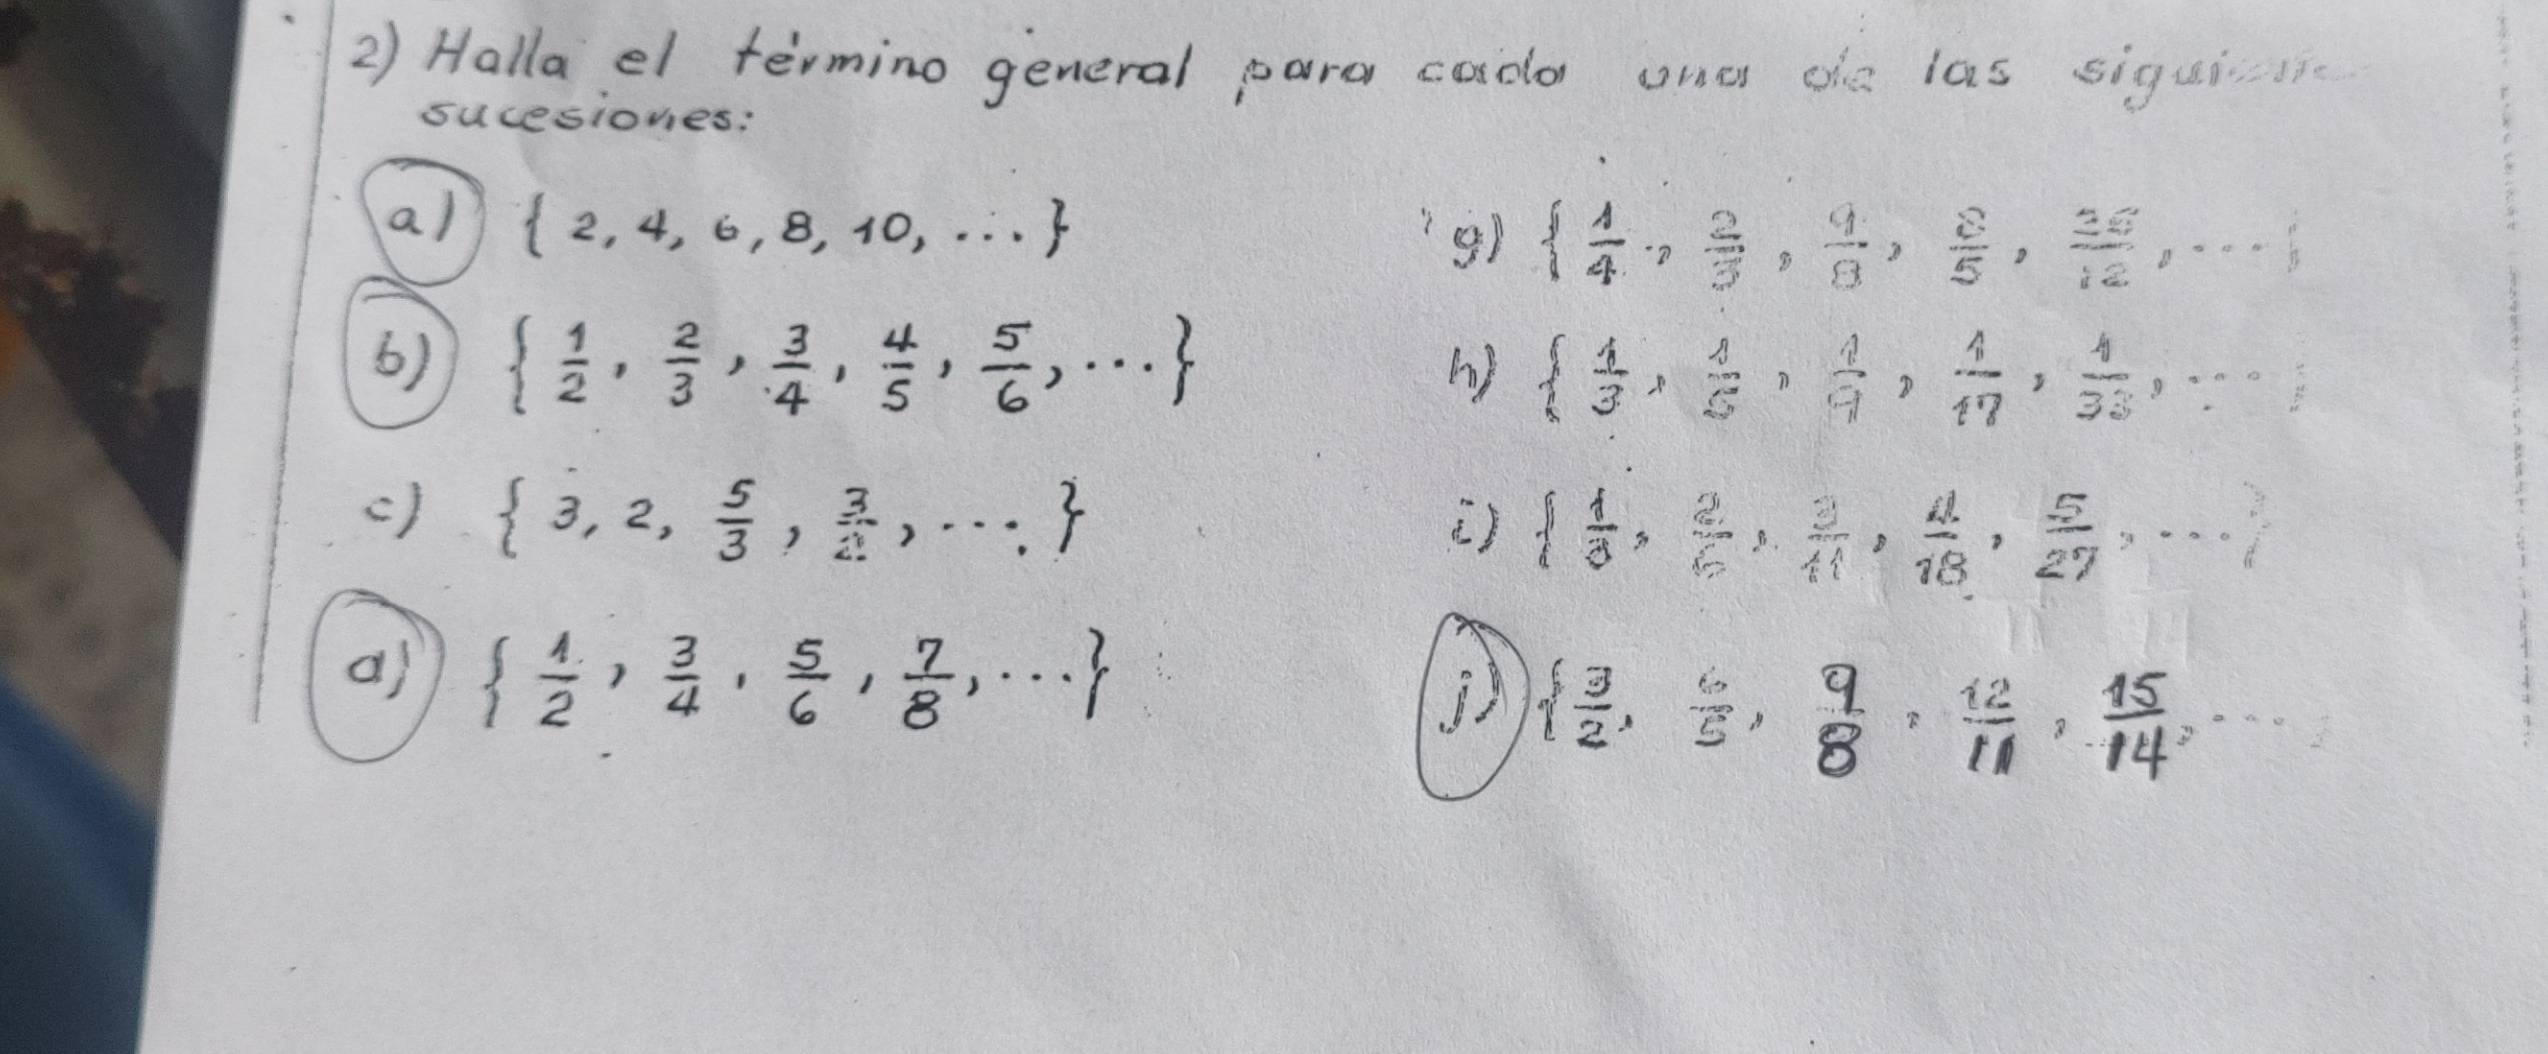 2) Halla el término general para cada una de las
sucesiones:
a) { 2, 4, 6, 8, 10, ... }
b) { 1/2, 2/3, 3/4, 4/5, 5/6, ... }
c) { 3, 2, 5/3, 3/2, ... }
d) { 1/2, 3/4, 5/6, 7/8, ... }
g) { 1/4, 2/3, 9/8, 8/5, 25/12, ... }
h) { 1/3, 1/5, 1/9, 1/17, 1/33, ... }
i) { 1/3, 2/6, 3/11, 4/18, 5/27, ... }
j) { 3/2, 6/5, 9/8, 12/11, 15/14, ...